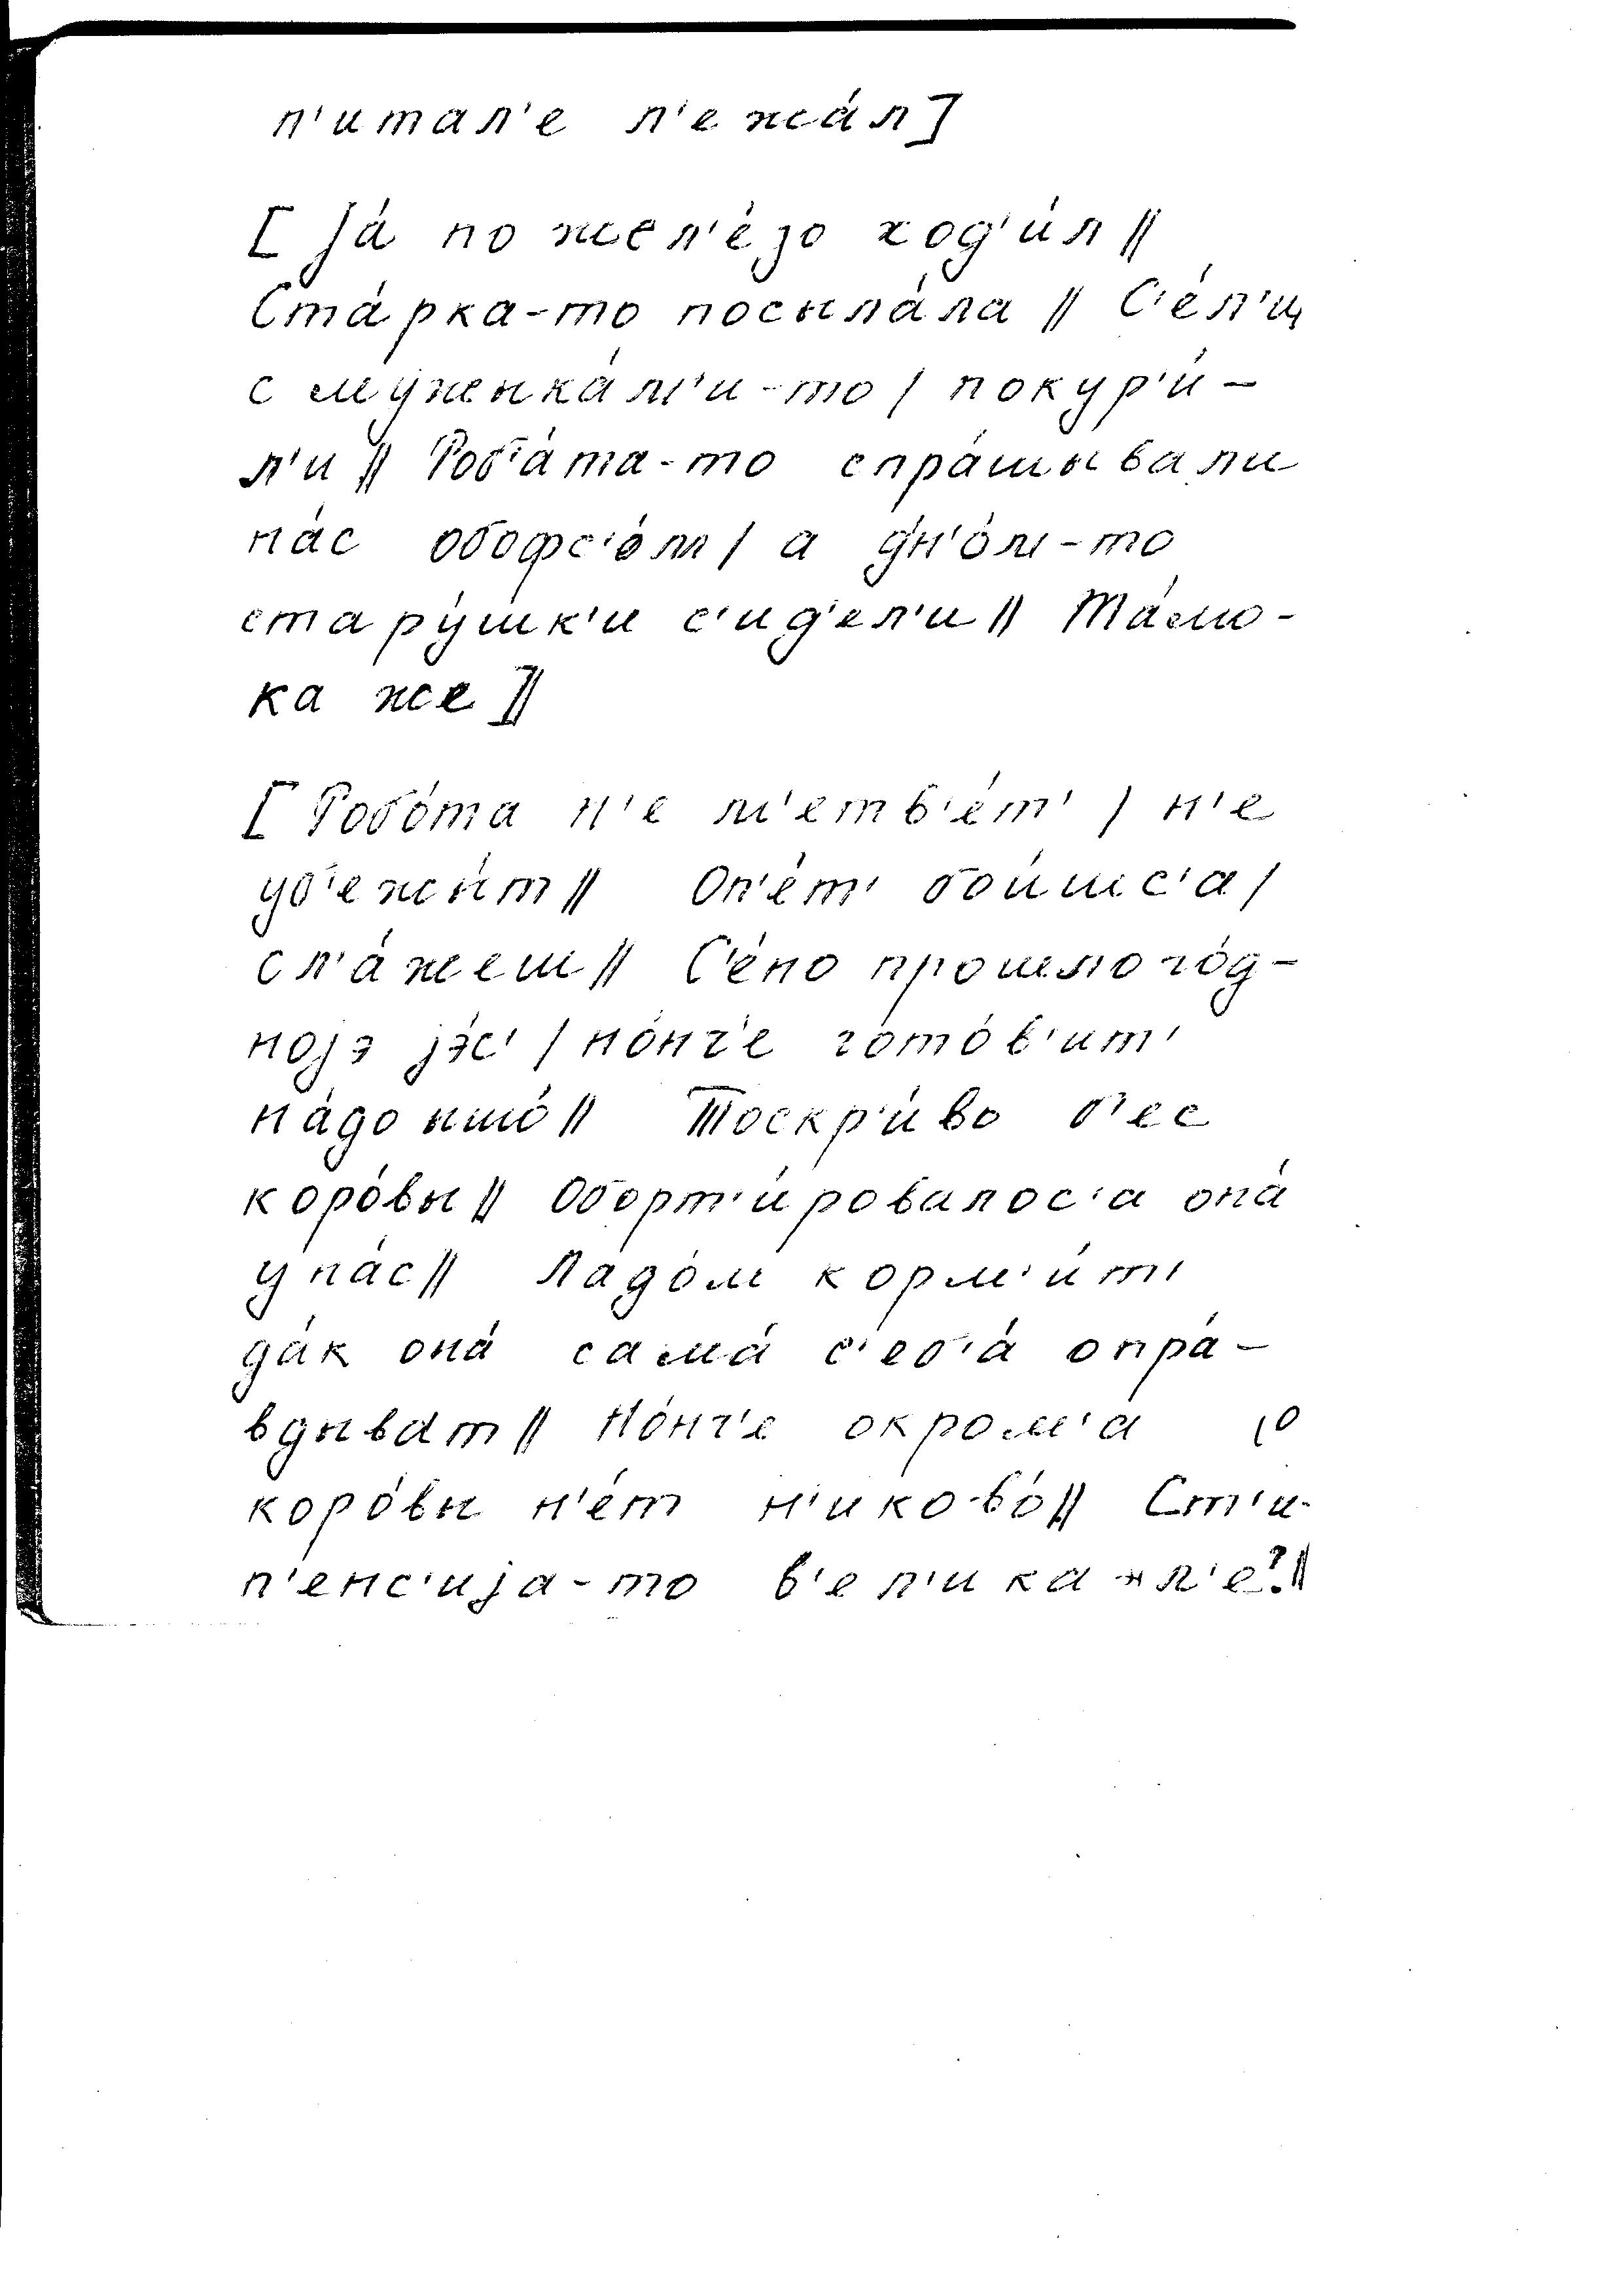 п'итал'е л'ежáл]
[Já по жел'éзо ход'и́л ||
Стáрка-то посылáла || С'éл'и
с мужыкáм'и-то / покур'и́-
л'и || Роб'áта-то спрáшывали
нáс обофс'óм / а дн'óм-то
стару́шк'и с'ид'éл'и || Тáмо-
ка же ]||
[ Робóта н'е м'етв'éт' / н'е
уб'ежы́т || Оп'éт' бои́шс'а /
сл'áжеш || С'éно прошлогóд-
нојэ јэ́с' / нóнч'е готóв'ит'
нáдо ышó || Тоскр'и́во б'ес
корóвы || Оборт'и́ровалос'а онá
у нáс || Ладóм корм'и́т'
дáк онá самá с'еб'á опрá-
вдыват || Нóнч'е окром'а
корóвы н'éт н'ико-вó || Ст'и-
п'енс'ија-то в'ел'ика л'е?||